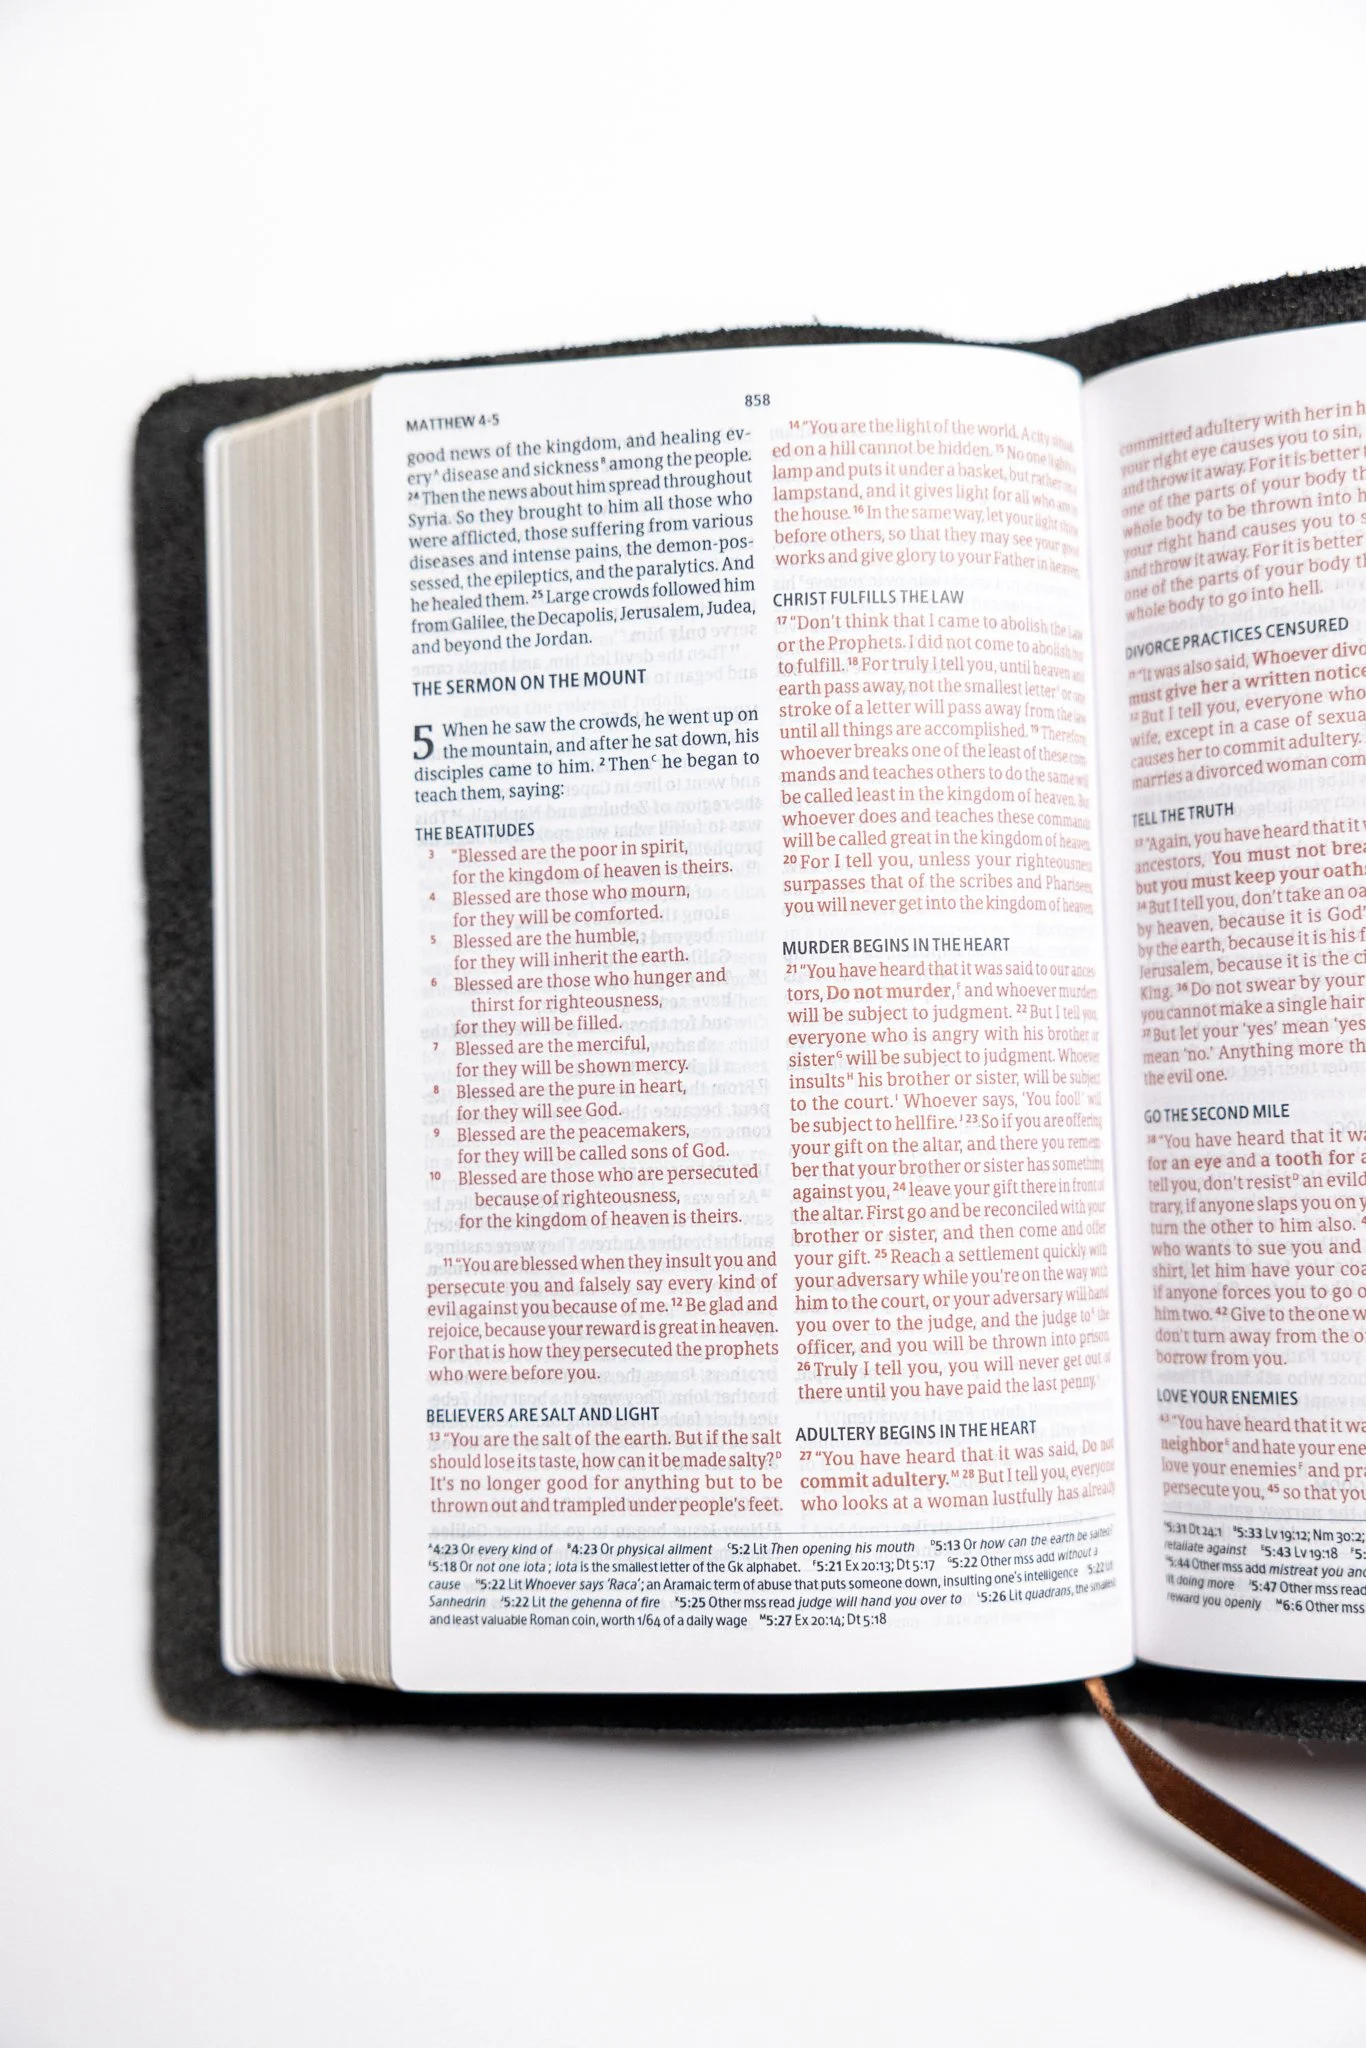 MATTHEW 4-5
858
good news of the kingdom, and healing ev-
eryᴬ disease and sicknessᴮ among the people.
²⁴ Then the news about him spread throughout
Syria. So they brought to him all those who
were afflicted, those suffering from various
diseases and intense pains, the demon-pos-
sessed, the epileptics, and the paralytics. And
he healed them. ²⁵ Large crowds followed him
from Galilee, the Decapolis, Jerusalem, Judea,
and beyond the Jordan.
THE SERMON ON THE MOUNT
5 When he saw the crowds, he went up on
the mountain, and after he sat down, his
disciples came to him. ² Thenᶜ he began to
teach them, saying:
THE BEATITUDES
3 "Blessed are the poor in spirit,
for the kingdom of heaven is theirs.
4 Blessed are those who mourn,
for they will be comforted.
5 Blessed are the humble,
for they will inherit the earth.
6 Blessed are those who hunger and
thirst for righteousness,
for they will be filled.
7 Blessed are the merciful,
for they will be shown mercy.
8 Blessed are the pure in heart,
for they will see God.
9 Blessed are the peacemakers,
for they will be called sons of God.
10 Blessed are those who are persecuted
because of righteousness,
for the kingdom of heaven is theirs.
¹¹ "You are blessed when they insult you and
persecute you and falsely say every kind of
evil against you because of me. ¹² Be glad and
rejoice, because your reward is great in heaven.
For that is how they persecuted the prophets
who were before you.
BELIEVERS ARE SALT AND LIGHT
¹³ "You are the salt of the earth. But if the salt
should lose its taste, how can it be made salty?ᴰ
It's no longer good for anything but to be
thrown out and trampled under people's feet.
¹⁴ "You are the light of the world. A city situat-
ed on a hill cannot be hidden. ¹⁵ No one lights a
lamp and puts it under a basket, but rather on a
lampstand, and it gives light for all who are in
the house. ¹⁶ In the same way, let your light shine
before others, so that they may see your good
works and give glory to your Father in heaven.
CHRIST FULFILLS THE LAW
¹⁷ "Don't think that I came to abolish the Law
or the Prophets. I did not come to abolish but
to fulfill. ¹⁸ For truly I tell you, until heaven and
earth pass away, not the smallest letterᴱ or one
stroke of a letter will pass away from the law
until all things are accomplished. ¹⁹ Therefore,
whoever breaks one of the least of these com-
mands and teaches others to do the same will
be called least in the kingdom of heaven. But
whoever does and teaches these commands
will be called great in the kingdom of heaven.
²⁰ For I tell you, unless your righteousness
surpasses that of the scribes and Pharisees,
you will never get into the kingdom of heaven.
MURDER BEGINS IN THE HEART
²¹ "You have heard that it was said to our ances-
tors, Do not murder,ᶠ and whoever murders
will be subject to judgment. ²² But I tell you,
everyone who is angry with his brother or
sisterᴳ will be subject to judgment. Whoever
insultsᴴ his brother or sister, will be subject
to the court.ᴵ Whoever says, 'You fool!' will
be subject to hellfire.ᴶ ²³ So if you are offering
your gift on the altar, and there you remem-
ber that your brother or sister has something
against you, ²⁴ leave your gift there in front of
the altar. First go and be reconciled with your
brother or sister, and then come and offer
your gift. ²⁵ Reach a settlement quickly with
your adversary while you're on the way with
him to the court, or your adversary will hand
you over to the judge, and the judge toᴷ the
officer, and you will be thrown into prison.
²⁶ Truly I tell you, you will never get out of
there until you have paid the last penny.ᴸ
ADULTERY BEGINS IN THE HEART
²⁷ "You have heard that it was said, Do not
commit adultery.ᴹ ²⁸ But I tell you, everyone
who looks at a woman lustfully has already
ᴬ4:23 Or every kind of ᴮ4:23 Or physical ailment ᶜ5:2 Lit Then opening his mouth ᴰ5:13 Or how can the earth be salted?
ᴱ5:18 Or not one iota; iota is the smallest letter of the Gk alphabet. ᶠ5:21 Ex 20:13; Dt 5:17 ᴳ5:22 Other mss add without a
cause ᴴ5:22 Lit Whoever says 'Raca'; an Aramaic term of abuse that puts someone down, insulting one's intelligence ᴵ5:22 Lit
Sanhedrin ᴶ5:22 Lit the gehenna of fire ᴷ5:25 Other mss read judge will hand you over to ᴸ5:26 Lit quadrans, the smallest
and least valuable Roman coin, worth 1/64 of a daily wage ᴹ5:27 Ex 20:14; Dt 5:18
committed adultery with her in h
your right eye causes you to sin,
and throw it away. For it is better
one of the parts of your body th
whole body to be thrown into h
your right hand causes you to s
and throw it away. For it is better
one of the parts of your body th
whole body to go into hell.
DIVORCE PRACTICES CENSURED
³¹ "It was also said, Whoever divo
must give her a written notice
³² But I tell you, everyone who
wife, except in a case of sexua
causes her to commit adultery.
marries a divorced woman com
TELL THE TRUTH
³³ "Again, you have heard that it w
ancestors, You must not brea
but you must keep your oaths
³⁴ But I tell you, don't take an oa
by heaven, because it is God'
by the earth, because it is his f
Jerusalem, because it is the ci
King. ³⁶ Do not swear by your
you cannot make a single hair
³⁷ But let your 'yes' mean 'yes
mean 'no.' Anything more th
the evil one.
GO THE SECOND MILE
³⁸ "You have heard that it wa
for an eye and a tooth for a
tell you, don't resistᴰ an evild
trary, if anyone slaps you on y
turn the other to him also. ⁴
who wants to sue you and
shirt, let him have your coa
if anyone forces you to go o
him two. ⁴² Give to the one w
don't turn away from the o
borrow from you.
LOVE YOUR ENEMIES
⁴³ "You have heard that it wa
neighborᴱ and hate your ene
love your enemiesᶠ and pra
persecute you, ⁴⁵ so that you
5:31 Dt 24:1 5:33 Lv 19:12; Nm 30:2;
retaliate against 5:43 Lv 19:18
5:44 Other mss add mistreat you and
it doing more 5:47 Other mss read
reward you openly ᴹ6:6 Other mss